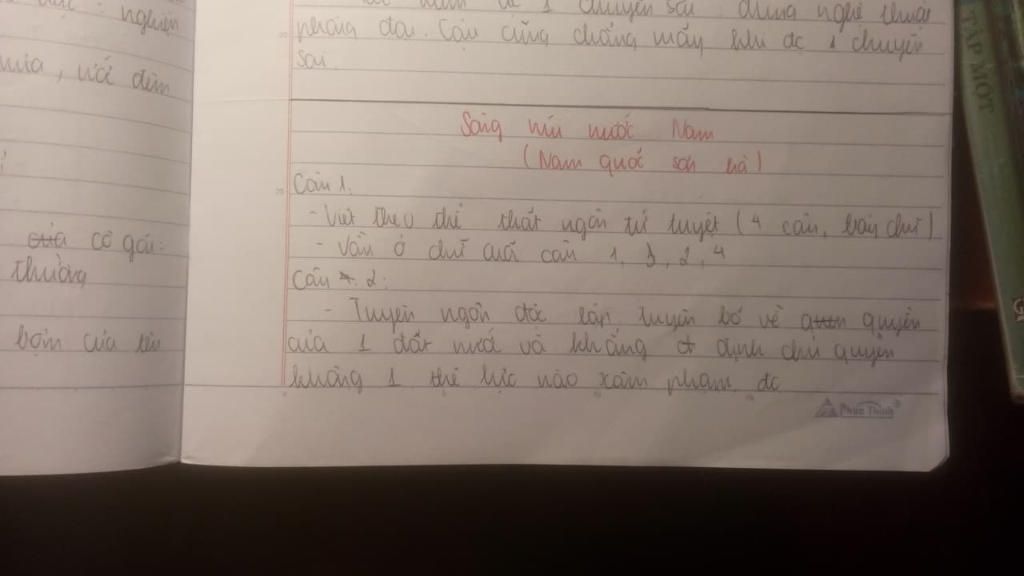 nghiện
mưa, ướt đêm
của cô gái:
thường
bạn của tên
1 chuyện sai dùng nghệ thuật
phóng đại. Cậu cũng chẳng mấy khi đc 1 chuyến
sai.
Sông núi nước Nam
(Nam quốc sơn hà)
Câu 1.
- Viết theo thể thất ngôn tứ tuyệt (4 câu, bảy chữ)
- Vần ở chữ cuối câu 1, 3, 2, 4
Câu 2:
- Tuyên ngôn độc lập tuyên bố về quyền
của 1 đất nước và khẳng định chủ quyền
không 1 thế lực nào xâm phạm đc
Phúc Thịnh
TẬP MỘT